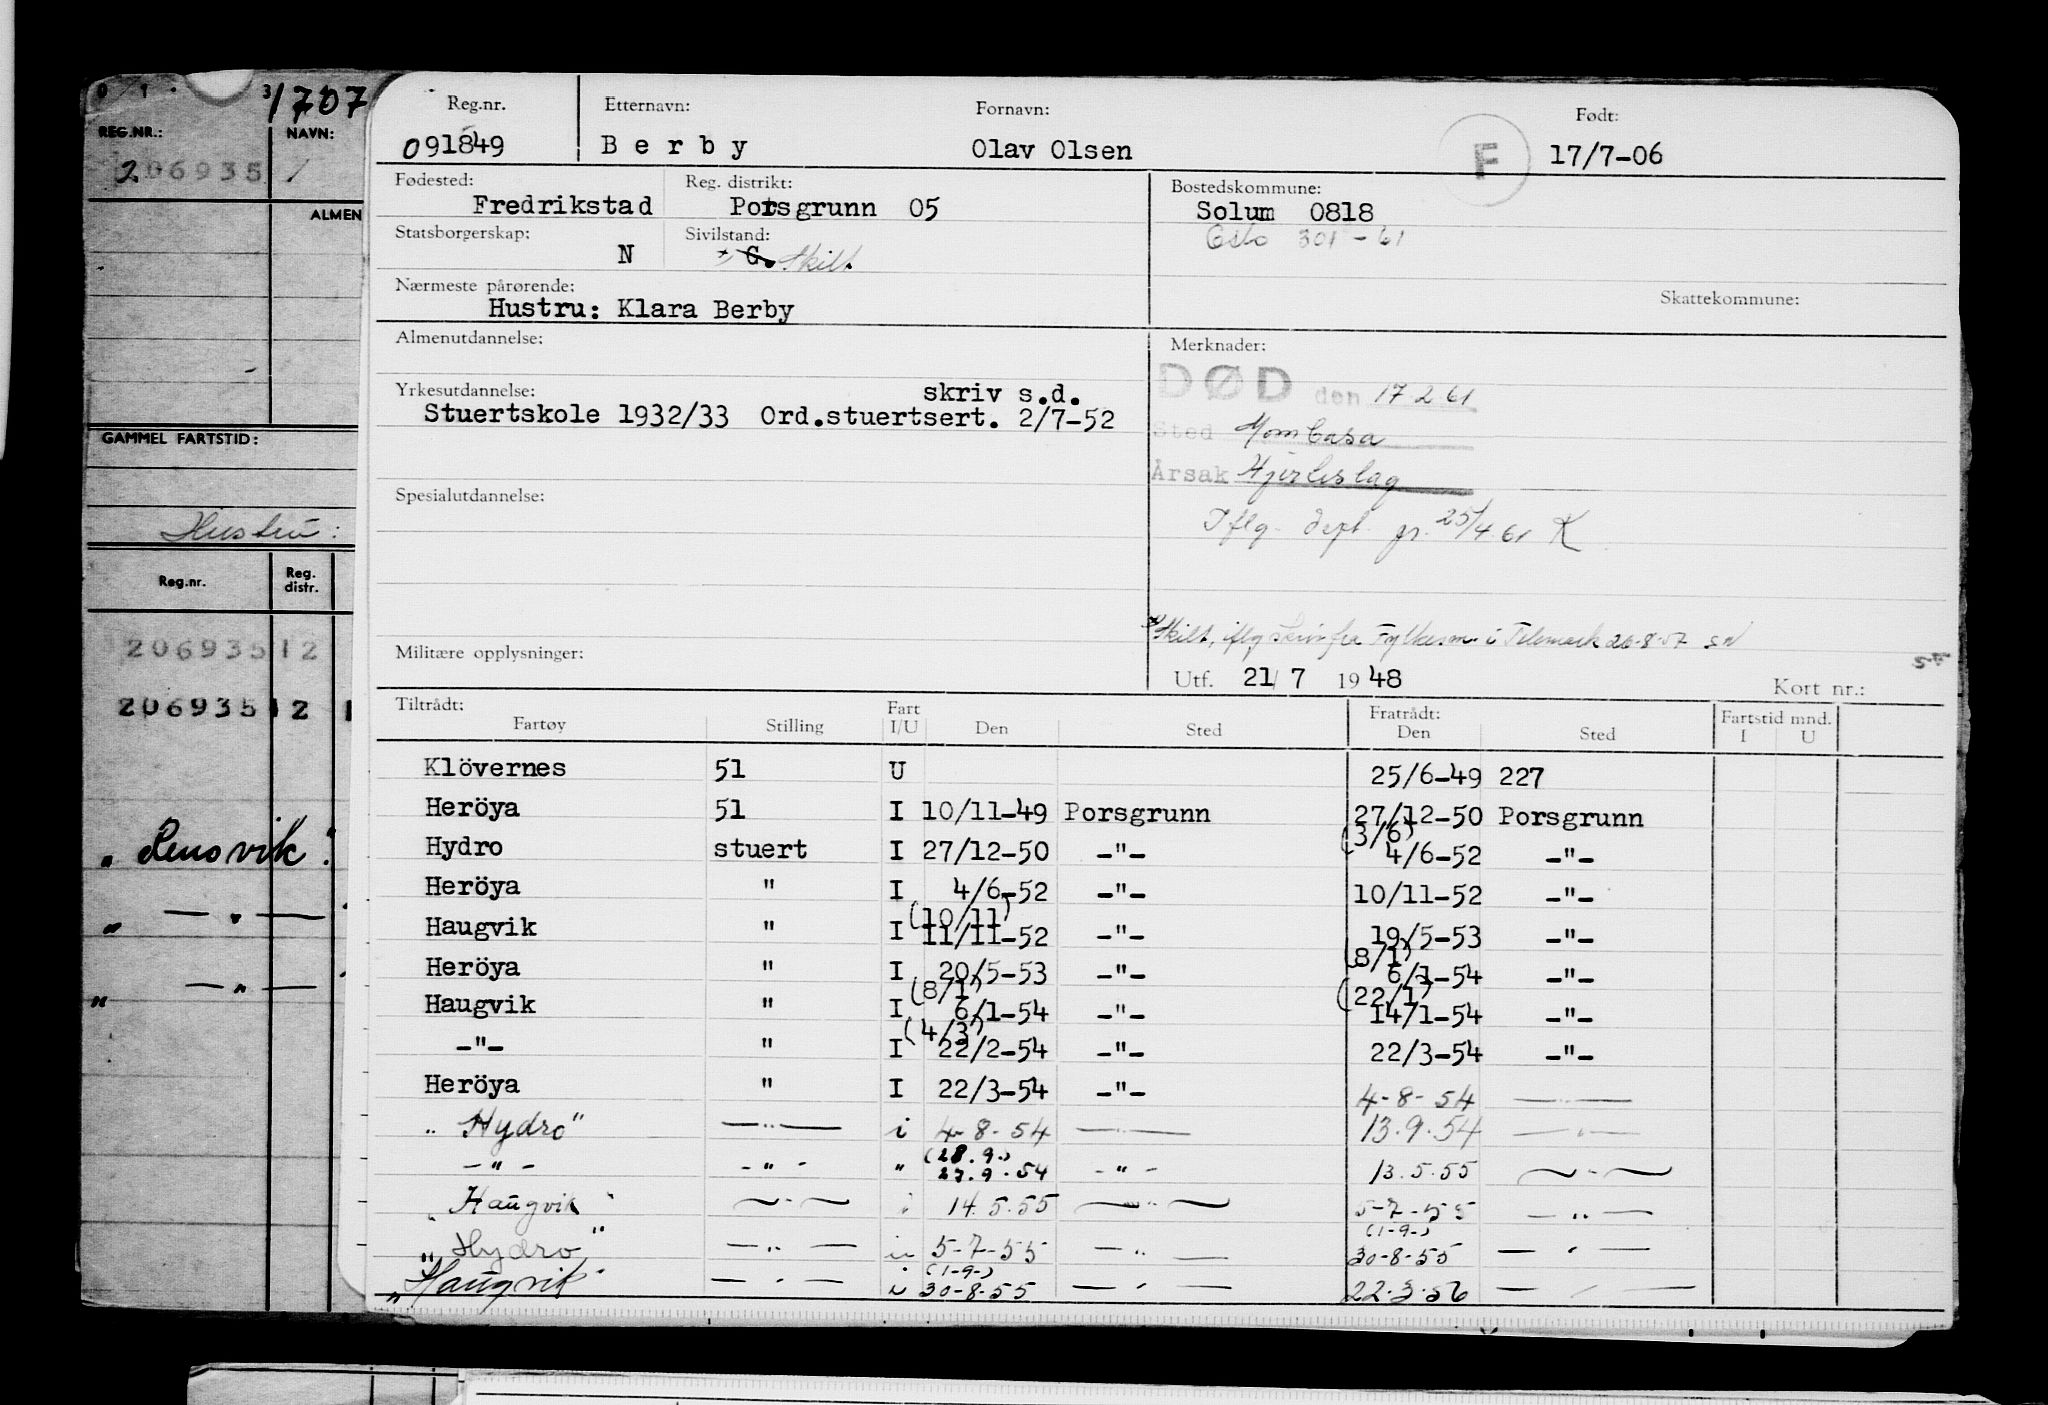 1707
REG.NR.:
NAVN:
206935
ALMEN
GAMMEL FARTSTID:
Hustru:
Reg.nr.
Reg. distr.
206935 12
206935 12 1
"Lenovik".
" — " —
" — " —
Reg.nr. Etternavn: Fornavn: Født:
091849 Berby Olav Olsen F 17/7-06
Fødested: Reg. distrikt: Bostedskommune:
Fredrikstad Porsgrunn 05 Solum 0818
Statsborgerskap: Sivilstand: Oslo 301-61
N G. Skilt.
Nærmeste pårørende: Skattekommune:
Hustru: Klara Berby
Almenutdannelse: Merknader:
DØD den 17.2.61
Yrkesutdannelse: skriv s.d.
Stuertskole 1932/33 Ord.stuertsert. 2/7-52
Sted Mombasa
Årsak Hjerteslag
Spesialutdannelse:
Iflg. dept. 25/4.61 K
Skilt, iflg skriv fra Fylkesm. i Telemark 26-8-57
Militære opplysninger:
Utf. 21/7 1948 Kort nr.:
Tiltrådt: Fart Fratrådt: Fartstid mnd.
Fartøy Stilling I/U Den Sted Den Sted I U
Klövernes 51 U 25/6-49 227
Heröya 51 I 10/11-49 Porsgrunn 27/12-50 Porsgrunn
(3/6)
Hydro stuert I 27/12-50 -"- 4/6-52 -"-
Heröya " I 4/6-52 -"- 10/11-52 -"-
(10/11)
Haugvik " I 11/11-52 -"- 19/5-53 -"-
(8/1)
Heröya " I 20/5-53 -"- 6/1-54 -"-
(8/1) (22/1)
Haugvik " I 6/1-54 -"- 14/1-54 -"-
(4/3)
-"- " I 22/2-54 -"- 22/3-54 -"-
Heröya " I 22/3-54 -"- 4-8-54 —"—
"Hydro" —"— i 4-8-54 —"— 13.9.54 —"—
(28.9.)
-"- -"- " 27.9.54 -"- 13.5.55 —"—
"Haugvik" —"— i 14.5.55 —"— 5-7-55 —"—
(1-9-)
"Hydro" —"— i 5-7-55 —"— 30-8-55 —"—
(1-9-)
"Haugvik" —"— i 30-8-55 —"— 22.3.56 —"—